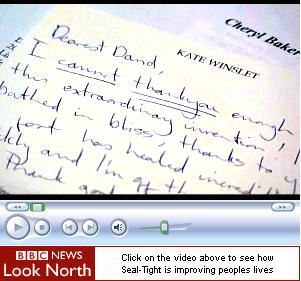 Cheryl Baker
Dearest David,
KATE WINSLET
I cannot thankyou enough
this extraordinary invention, I
bathed in bliss, thanks to y
foot has healed incredib
and I'm off the
Thank god
BBC NEWS
Look North
Click on the video above to see how
Seal-Tight is improving peoples lives